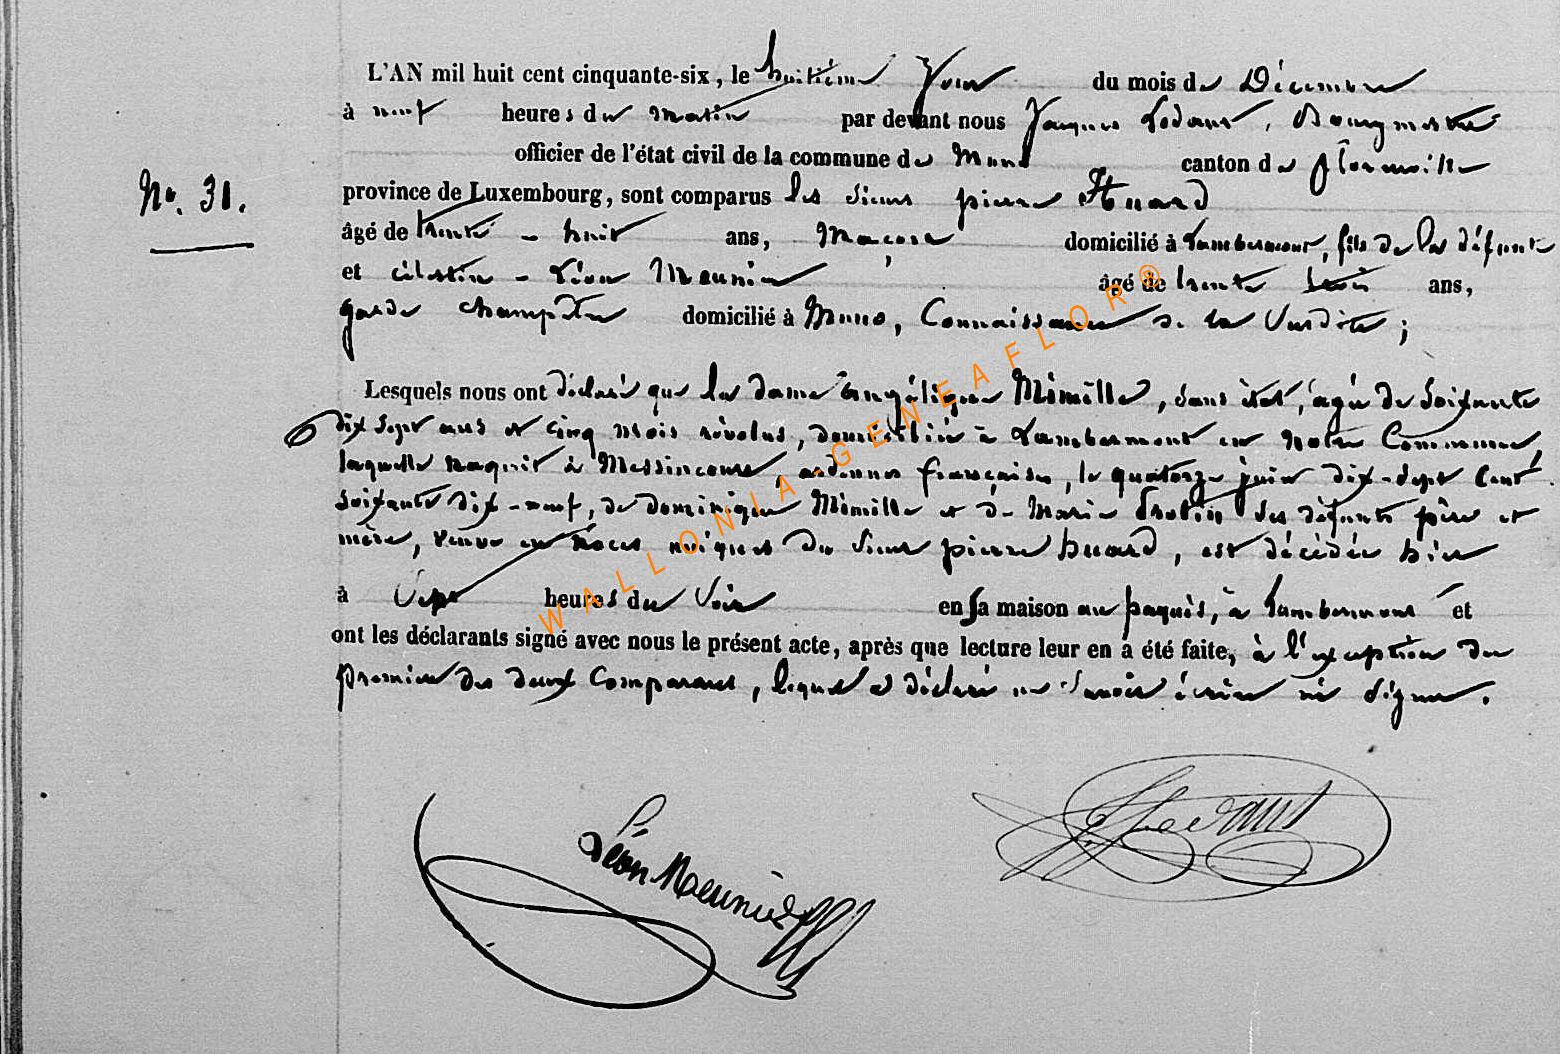 L'AN mil huit cent cinquante-six, le huitième Jour du mois de Décembre
à neuf heures du matin par devant nous Jacques Lodant, Bourgmestre
officier de l'état civil de la commune de Muno canton de florenville
No. 31.
province de Luxembourg, sont comparus les sieurs pierre Huard
âgé de trente-huit ans, Maçon domicilié à Lambermont, fils de la défunte
et célestin-Léon Meunier âgé de trente trois ans,
garde champêtre domicilié à Muno, Connaissance de la Susdite;
Lesquels nous ont déclaré que la dame angélique Mimille, sans état, âgée de Soixante
dix sept ans et cinq mois révolus, domiciliée à Lambermont en notre Commune
laquelle naquit à Messincourt, ardennes françaises, le quatorze juin dix-sept Cent
soixante dix-neuf, de dominique Mimille et de Marie ses défunts père et
mère, veuve en nôces uniques du sieur pierre huard, est décédée hier
à Sept heures du Soir en sa maison au paquis, à Lambermont et
ont les déclarants signé avec nous le présent acte, après que lecture leur en a été faite, à l'exception du
premier des deux Comparants, lequel a déclaré ne Savoir écrire ni Signer.
Léon Meunier
WALLONIA-GENEAFLOR®